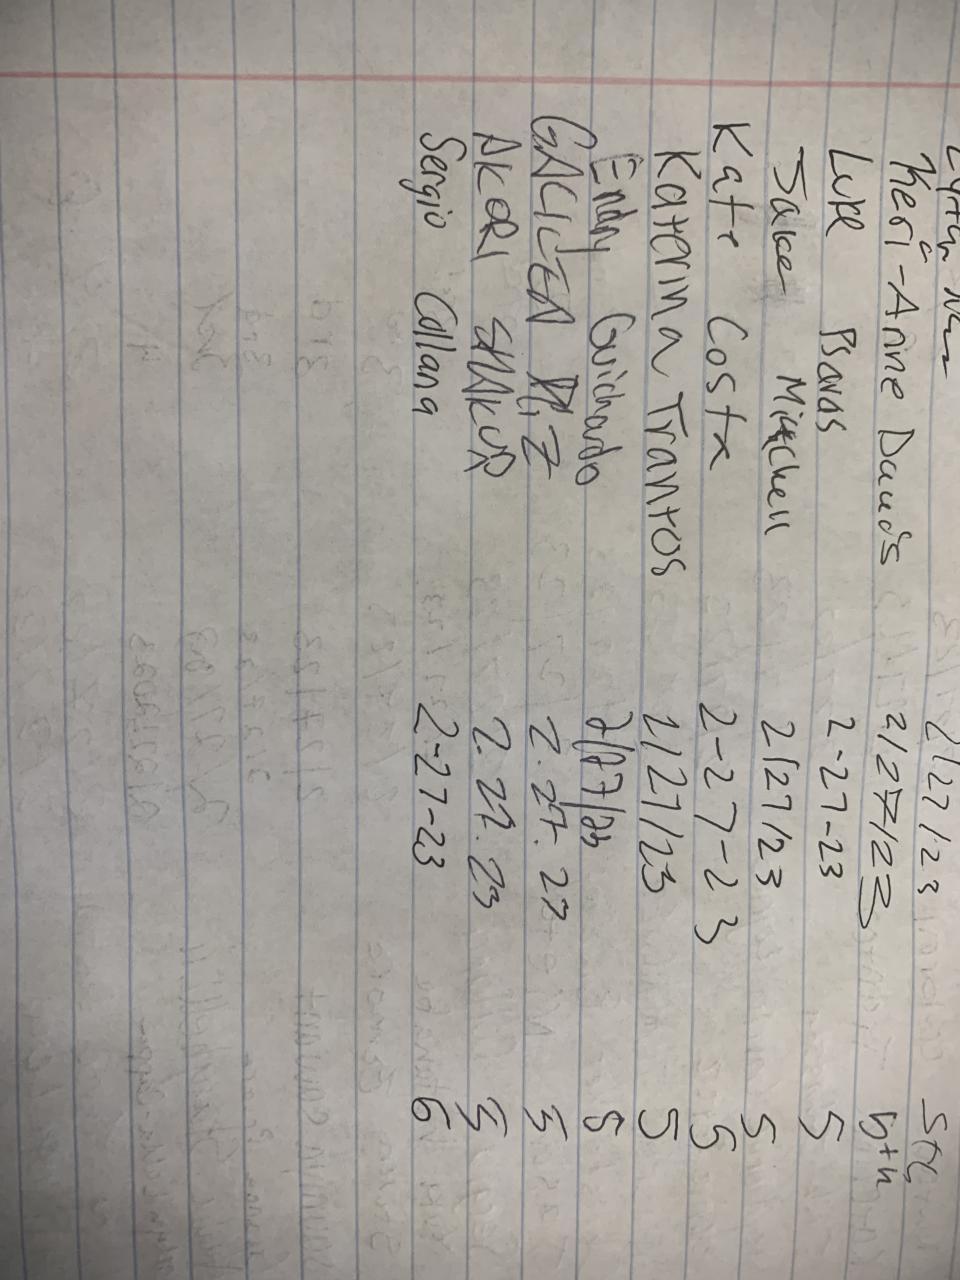 2/27/23 5th
Keri-Anne Davids 2/27/23 5th
Luke Psaras 2-27-23 5
Jake Mitchell 2/27/23 5
Kate Costa 2-27-23 5
Katerina Trantos 2/27/23 5
Endry Guichardo 2/27/23 5
2.27.23 5
AKORI SHAKUR 2.27.23 5
Sergio Collana 2-27-23 6